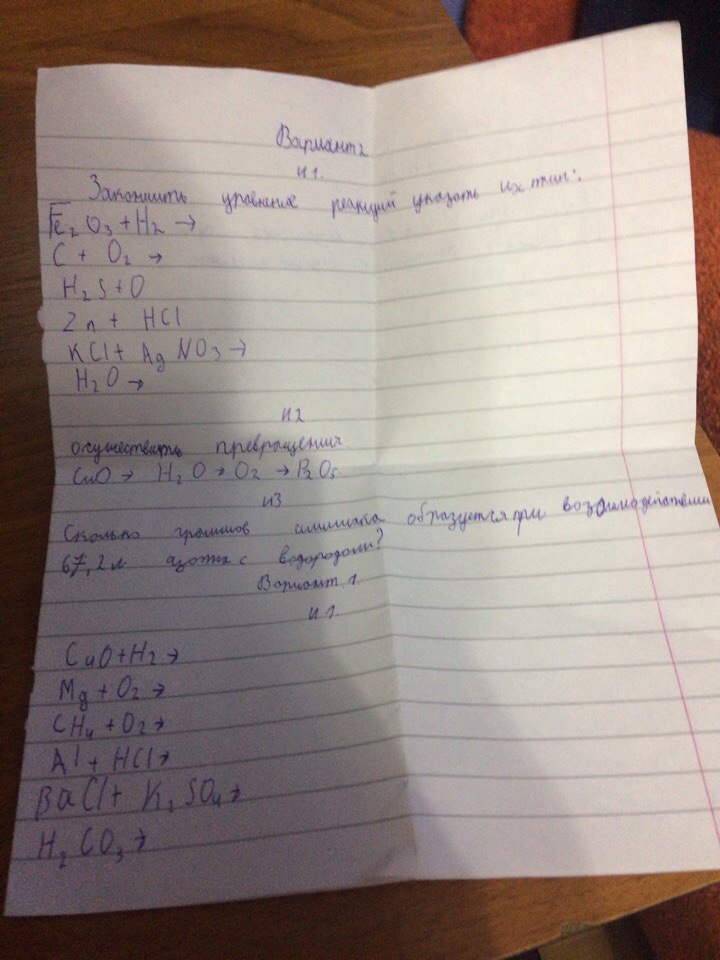 Вариант 2
н 1.
Закончить уравнение реакций указать их тип:
Fe₂O₃ + H₂ →
C + O₂ →
H₂S + O
Zn + HCl
KCl + AgNO₃ →
H₂O →
н 2
осуществить превращения
CuO → H₂O → O₂ → P₂O₅
н 3
Сколько граммов аммиака образуется при взаимодействии
67,2 л азота с водородом?
Вариант 1
н 1.
CuO + H₂ →
Mg + O₂ →
CH₄ + O₂ →
Al + HCl →
BaCl + K₂SO₄ →
H₂CO₃ →